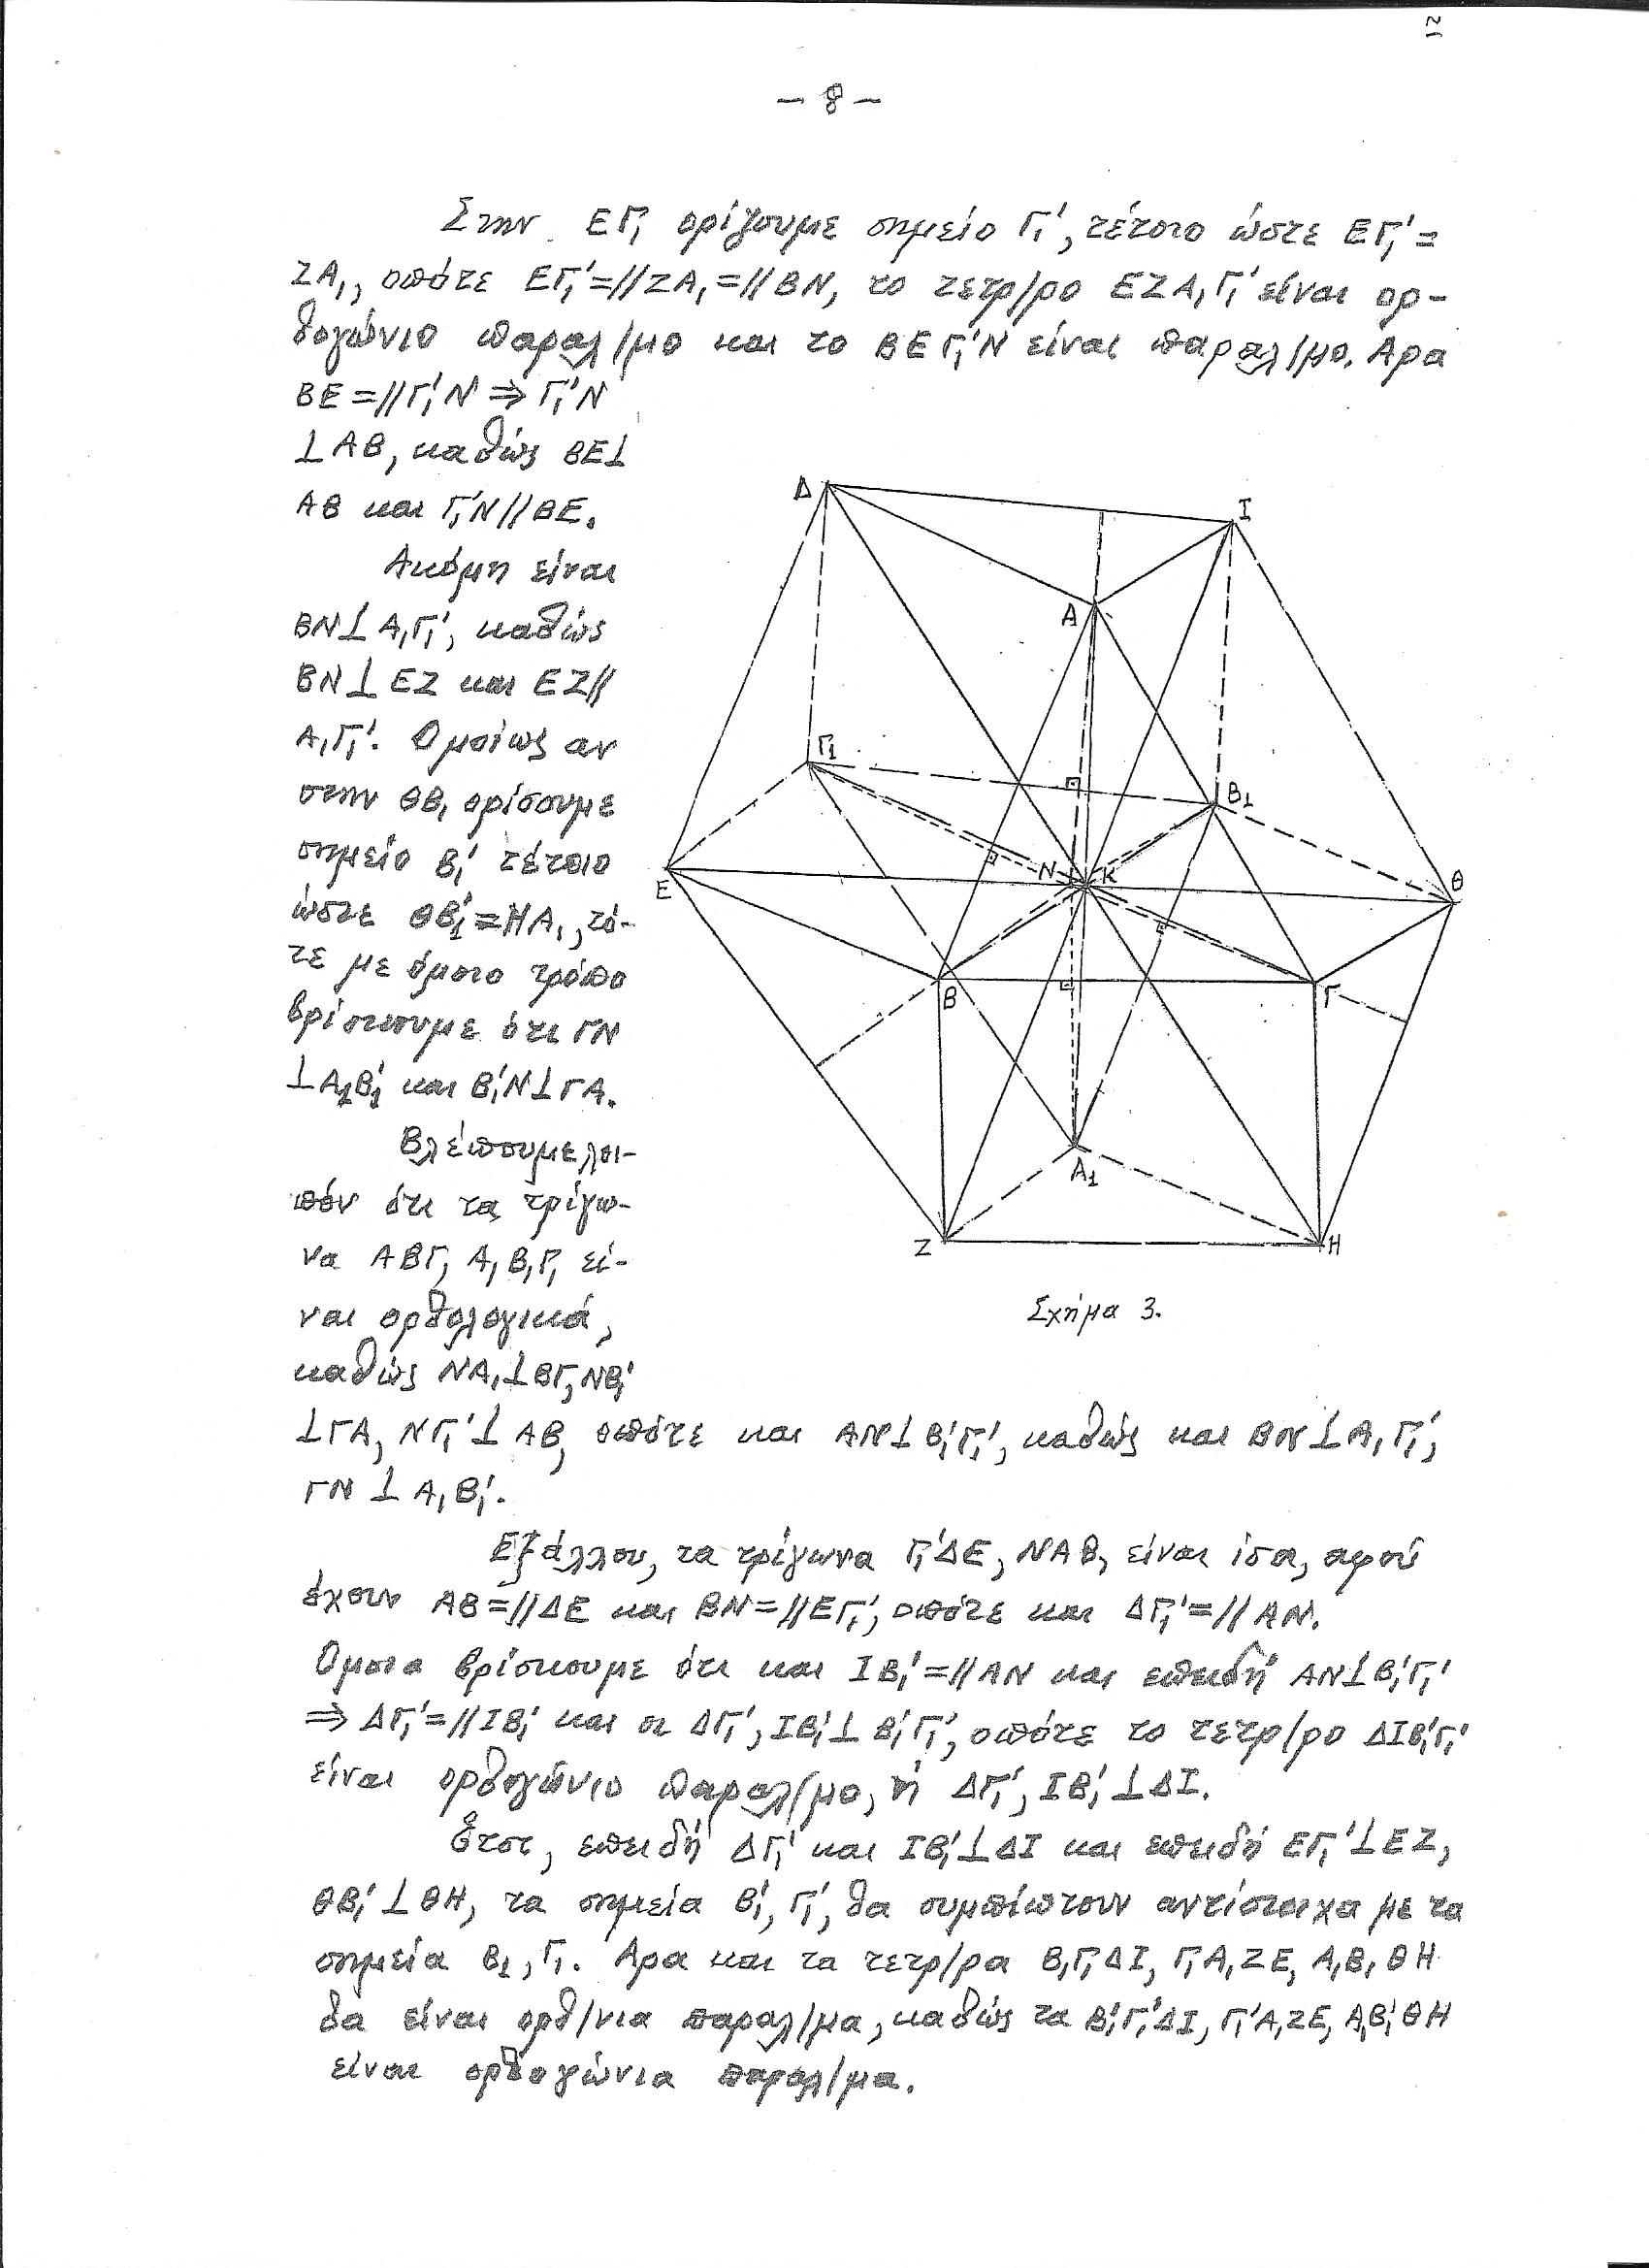 ~
1
- 8 -
Στην ΕΓ₁ ορίζουμε σημείο Γ₁', τέτοιο ώστε ΕΓ₁'=
ΖΑ₁, οπότε ΕΓ₁'=//ΖΑ₁=//ΒΝ, το τετρ/ρο ΕΖΑ₁Γ₁' είναι ορ-
θογώνιο παραλ/μο και το ΒΕΓ₁'Ν είναι παραλ/μο. Αρα
ΒΕ=//Γ₁'Ν ⇒ Γ₁'Ν
⊥ΑΒ, καθώς ΒΕ⊥
ΑΒ και Γ₁'Ν//ΒΕ.
Ακόμη είναι
ΒΝ⊥Α₁Γ₁', καθώς
ΒΝ⊥ΕΖ και ΕΖ//
Α₁Γ₁'. Ομοίως αν
στην ΘΒ₁ ορίσουμε
σημείο Β₁' τέτοιο
ώστε ΘΒ₁'=ΗΑ₁, τό-
τε με όμοιο τρόπο
βρίσκουμε ότι ΓΝ
⊥Α₁Β₁' και Β₁'Ν⊥ΓΑ.
Βλέπουμε λοι-
πόν ότι τα τρίγω-
να ΑΒΓ, Α₁Β₁Γ₁ εί-
ναι ορθολογικά,
καθώς ΝΑ₁⊥ΒΓ, ΝΒ₁'
⊥ΓΑ, ΝΓ₁'⊥ΑΒ, οπότε και ΑΝ⊥Β₁'Γ₁', καθώς και ΒΝ⊥Α₁Γ₁',
ΓΝ⊥Α₁Β₁'.
Δ
Ι
Α
Γ₁
Β₁
Ε
Ν
Κ
Θ
Β
Γ
Α₁
Ζ
Η
Σχήμα 3.
Εξάλλου, τα τρίγωνα Γ₁'ΔΕ, ΝΑΒ, είναι ίσα, αφού
έχουν ΑΒ=//ΔΕ και ΒΝ=//ΕΓ₁', οπότε και ΔΓ₁'=//ΑΝ.
Ομοια βρίσκουμε ότι και ΙΒ₁'=//ΑΝ και επειδή ΑΝ⊥Β₁'Γ₁'
⇒ ΔΓ₁'=//ΙΒ₁' και οι ΔΓ₁', ΙΒ₁'⊥Β₁'Γ₁', οπότε το τετρ/ρο ΔΙΒ₁'Γ₁'
είναι ορθογώνιο παραλ/μο, ή ΔΓ₁', ΙΒ₁'⊥ΔΙ.
Ετσι, επειδή ΔΓ₁' και ΙΒ₁'⊥ΔΙ και επειδή ΕΓ₁'⊥ΕΖ,
ΘΒ₁'⊥ΘΗ, τα σημεία Β₁', Γ₁', θα συμπίπτουν αντίστοιχα με τα
σημεία Β₁, Γ₁. Αρα και τα τετρ/ρα Β₁Γ₁ΔΙ, Γ₁Α₁ΖΕ, Α₁Β₁ΘΗ
θα είναι ορθ/νια παραλ/μα, καθώς τα Β₁'Γ₁'ΔΙ, Γ₁'Α₁ΖΕ, Α₁Β₁'ΘΗ
είναι ορθογώνια παραλ/μα.